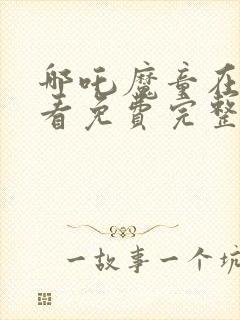 哪吒魔童在
看免费完整
一故事一个坑